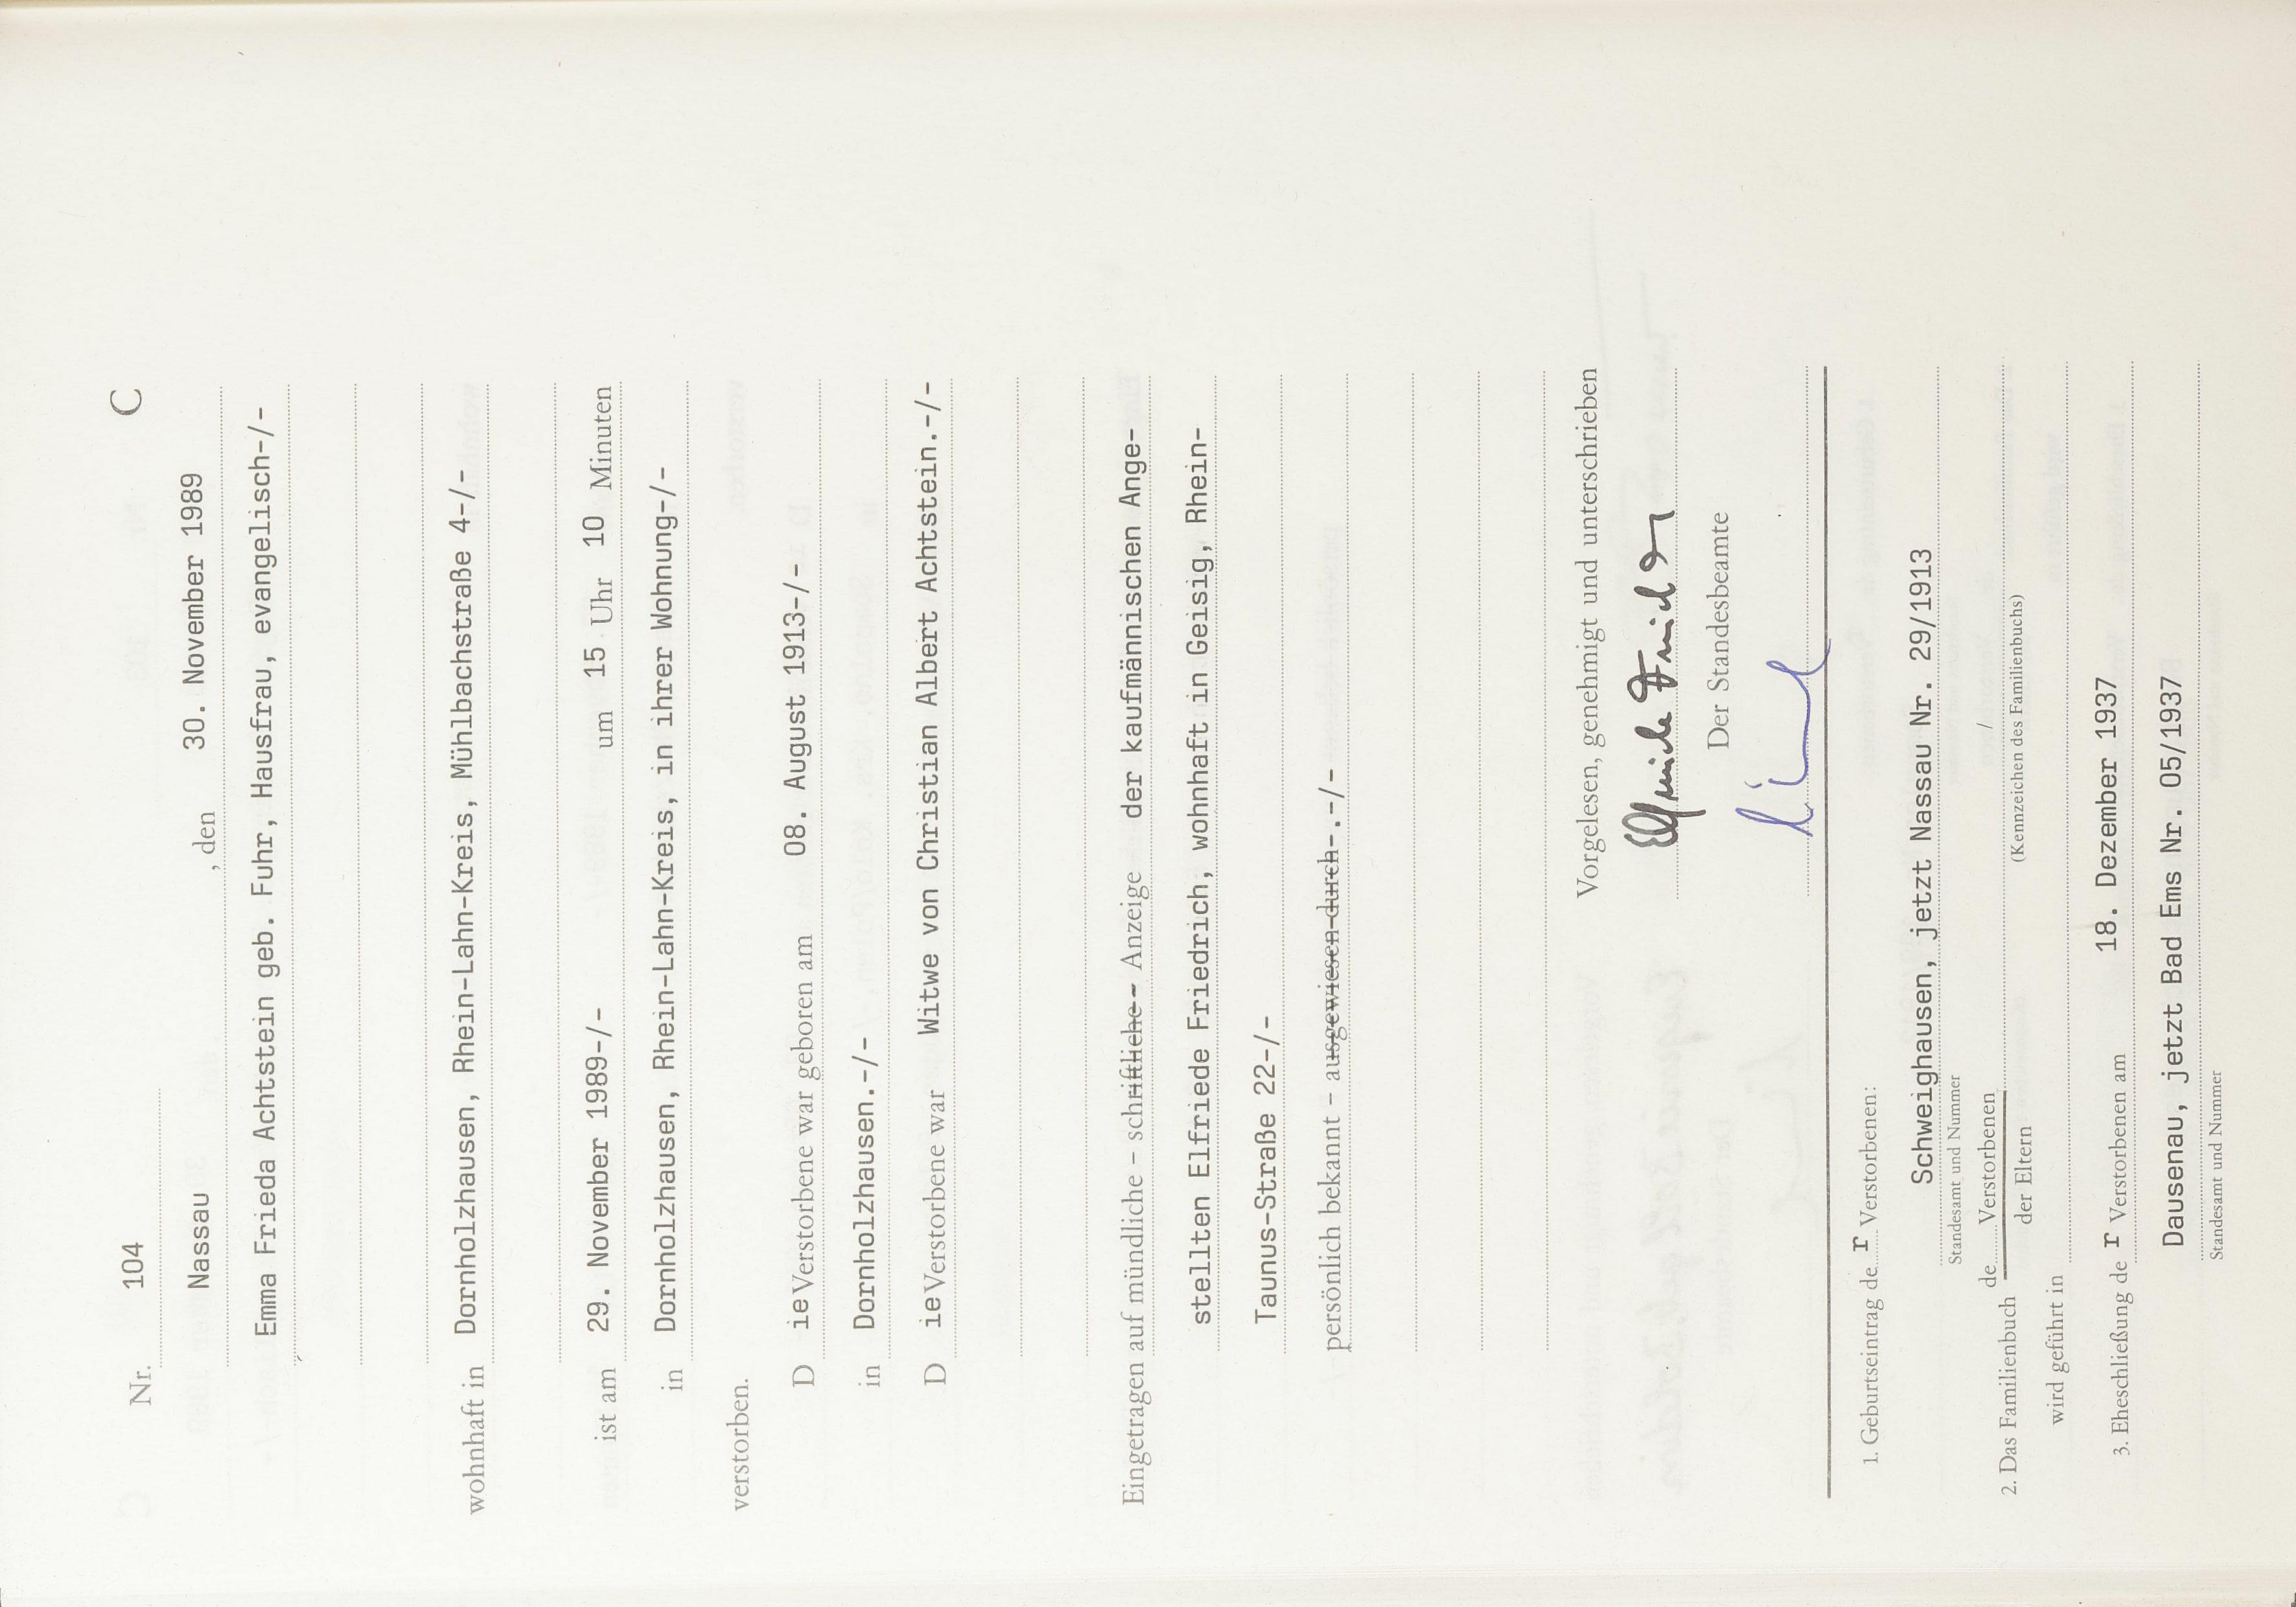 Nr. 104 C
Nassau , den 30. November 1989
Emma Frieda Achtstein geb. Fuhr, Hausfrau, evangelisch-/-
wohnhaft in Dornholzhausen, Rhein-Lahn-Kreis, Mühlbachstraße 4-/-
ist am 29. November 1989-/- um 15 Uhr 10 Minuten
in Dornholzhausen, Rhein-Lahn-Kreis, in ihrer Wohnung-/-
verstorben.
D ie Verstorbene war geboren am 08. August 1913-/-
in Dornholzhausen.-/-
D ie Verstorbene war Witwe von Christian Albert Achtstein.-/-
Eingetragen auf mündliche – schriftliche-- Anzeige der kaufmännischen Ange-
stellten Elfriede Friedrich, wohnhaft in Geisig, Rhein-
Taunus-Straße 22-/-
persönlich bekannt – ausgewiesen durch-.-/-
Vorgelesen, genehmigt und unterschrieben
Elfriede Friedrich
Der Standesbeamte
1. Geburtseintrag de r Verstorbenen:
Schweighausen, jetzt Nassau Nr. 29/1913
Standesamt und Nummer
2. Das Familienbuch de Verstorbenen /
der Eltern (Kennzeichen des Familienbuchs)
wird geführt in
3. Eheschließung de r Verstorbenen am 18. Dezember 1937
Dausenau, jetzt Bad Ems Nr. 05/1937
Standesamt und Nummer